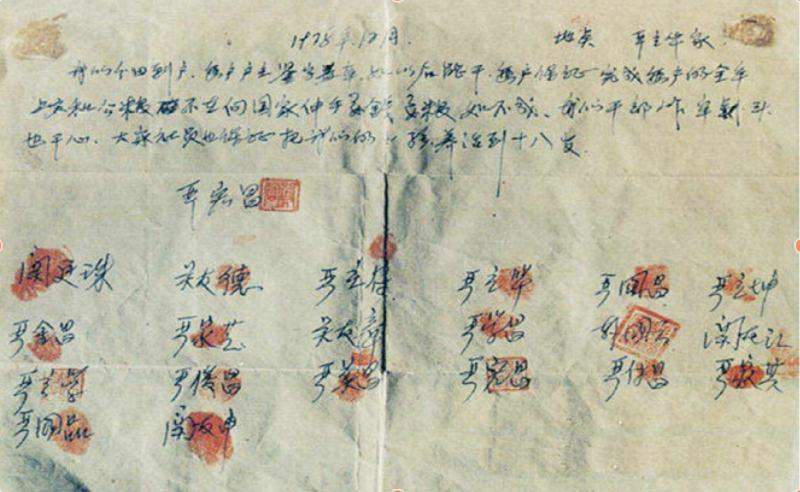 1978年12月. 地点 严立华家
我们分田到户,每户户主签字盖章,如以后能干,每户保证完成每户的全年
上交和公粮.不在向国家伸手要钱要粮.如不成,我们干部作牢剎头
也干心.大家社员也保证把我们的小孩养活到十八岁.
严宏昌
关廷珠 关友德 严立符 严立华 严国昌 严立坤
严金昌 严家芝 关友章 严学昌 韩国云 关友江
严立学 严俊昌 严美昌 严宏昌 严付昌 严家其
严国品 关友申